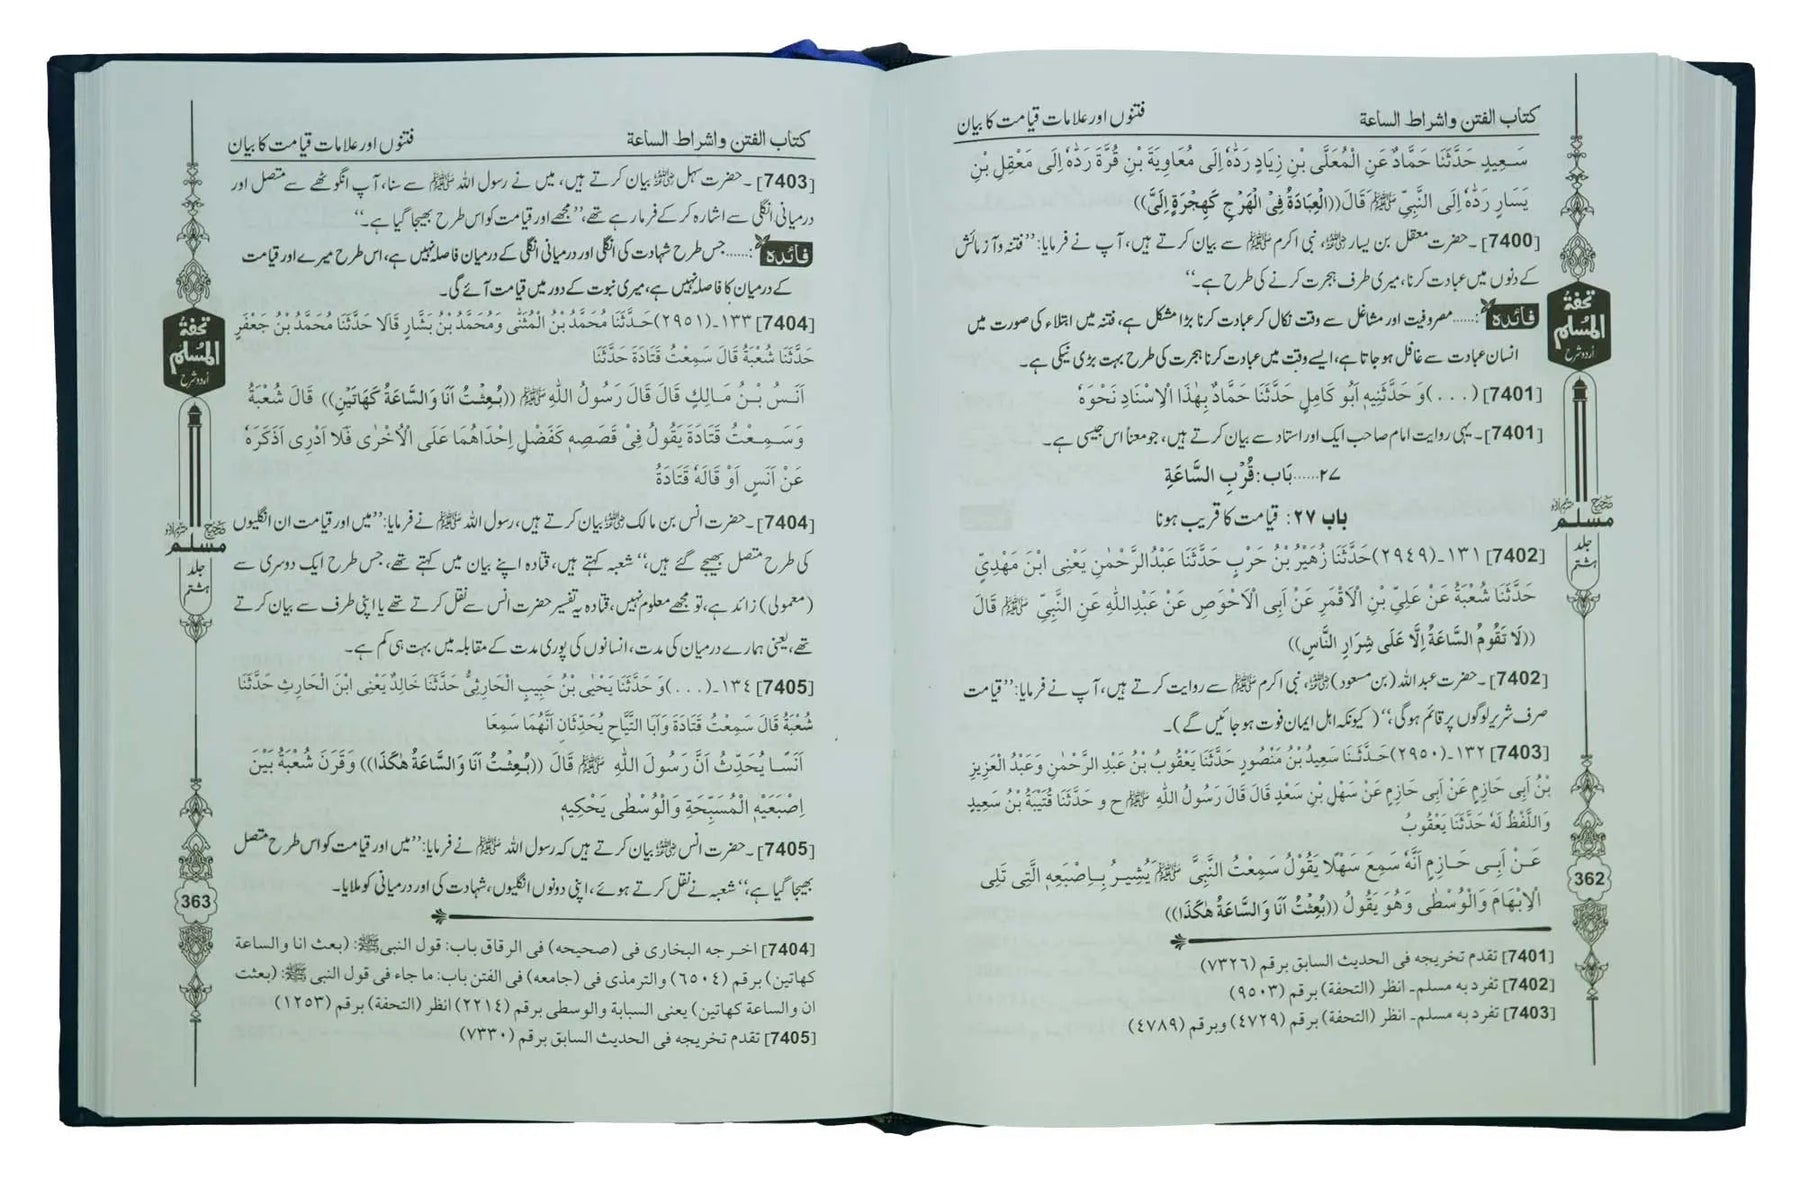 كتاب الفتن واشراط الساعة
فتنوں اور علامات قیامت کا بیان
سَعِيدٍ حَدَّثَنَا حَمَّادٌ عَنِ الْمُعَلَّى بْنِ زِيَادٍ رَدَّهُ إِلَى مُعَاوِيَةَ بْنِ قُرَّةَ رَدَّهُ إِلَى مَعْقِلِ بْنِ
يَسَارٍ رَدَّهُ إِلَى النَّبِيِّ ﷺ قَالَ((الْعِبَادَةُ فِي الْهَرْجِ كَهِجْرَةٍ إِلَيَّ))
[7400]۔حضرت معقل بن یسار ؓ، نبی اکرم ﷺ سے بیان کرتے ہیں، آپ نے فرمایا:’’فتنہ و آزمائش
کے دنوں میں عبادت کرنا، میری طرف ہجرت کرنے کی طرح ہے۔‘‘
فائدہ:......مصروفیت اور مشاغل سے وقت نکال کر عبادت کرنا بڑا مشکل ہے، فتنہ میں ابتلاء کی صورت میں
انسان عبادت سے غافل ہو جاتا ہے، ایسے وقت میں عبادت کرنا ہجرت کی طرح بہت بڑی نیکی ہے۔
[7401] (...) وَ حَدَّثَنِيهِ أَبُو كَامِلٍ حَدَّثَنَا حَمَّادٌ بِهٰذَا الْإِسْنَادِ نَحْوَهُ
[7401]۔یہی روایت امام صاحب ایک اور استاد سے بیان کرتے ہیں، جو معناً اس جیسی ہے۔
٢٧......بَاب: قُرْبِ السَّاعَةِ
باب ٢٧: قیامت کا قریب ہونا
[7402] ١٣١۔(٢٩٤٩)حَدَّثَنَا زُهَيْرُ بْنُ حَرْبٍ حَدَّثَنَا عَبْدُالرَّحْمٰنِ يَعْنِى ابْنَ مَهْدِيٍّ
حَدَّثَنَا شُعْبَةُ عَنْ عَلِيِّ بْنِ الْأَقْمَرِ عَنْ أَبِى الْأَحْوَصِ عَنْ عَبْدِاللّٰهِ عَنِ النَّبِيِّ ﷺ قَالَ
((لَا تَقُومُ السَّاعَةُ إِلَّا عَلَى شِرَارِ النَّاسِ))
[7402]۔حضرت عبد اللہ (بن مسعود) ؓ، نبی اکرم ﷺ سے روایت کرتے ہیں، آپ نے فرمایا:’’قیامت
صرف شریر لوگوں پر قائم ہوگی،‘‘ (کیونکہ اہل ایمان فوت ہو جائیں گے)۔
[7403] ١٣٢۔(٢٩٥٠)حَدَّثَنَا سَعِيدُ بْنُ مَنْصُورٍ حَدَّثَنَا يَعْقُوبُ بْنُ عَبْدِ الرَّحْمٰنِ وَعَبْدُ الْعَزِيزِ
بْنُ أَبِى حَازِمٍ عَنْ أَبِى حَازِمٍ عَنْ سَهْلِ بْنِ سَعْدٍ قَالَ قَالَ رَسُولُ اللّٰهِ ﷺ ح و حَدَّثَنَا قُتَيْبَةُ بْنُ سَعِيدٍ
وَاللَّفْظُ لَهُ حَدَّثَنَا يَعْقُوبُ
عَنْ أَبِى حَازِمٍ أَنَّهُ سَمِعَ سَهْلًا يَقُولُ سَمِعْتُ النَّبِيَّ ﷺ يُشِيرُ بِإِصْبَعِهِ الَّتِى تَلِى
الْإِبْهَامَ وَالْوُسْطٰى وَهُوَ يَقُولُ ((بُعِثْتُ أَنَا وَالسَّاعَةُ هٰكَذَا))
[7401] تقدم تخريجه فى الحديث السابق برقم (٧٣٢٦)
[7402] تفرد به مسلم۔ انظر (التحفة) برقم (٩٥٠٣)
[7403] تفرد به مسلم۔ انظر (التحفة) برقم (٤٧٢٩) وبرقم (٤٧٨٩)
تحفۃ
المسلم
اردو شرح
صحیح
مسلم
جلد
ہشتم
362
كتاب الفتن واشراط الساعة
فتنوں اور علامات قیامت کا بیان
[7403]۔حضرت سہل ؓ بیان کرتے ہیں، میں نے رسول اللہ ﷺ سے سنا، آپ انگوٹھے سے متصل اور
درمیانی انگلی سے اشارہ کر کے فرما رہے تھے،’’مجھے اور قیامت کو اس طرح بھیجا گیا ہے۔‘‘
فائدہ:......جس طرح شہادت کی انگلی اور درمیانی انگلی کے درمیان فاصلہ نہیں ہے، اس طرح میرے اور قیامت
کے درمیان کا فاصلہ نہیں ہے، میری نبوت کے دور میں قیامت آئے گی۔
[7404] ١٣٣۔(٢٩٥١)حَدَّثَنَا مُحَمَّدُ بْنُ الْمُثَنّٰى وَمُحَمَّدُ بْنُ بَشَّارٍ قَالَا حَدَّثَنَا مُحَمَّدُ بْنُ جَعْفَرٍ
حَدَّثَنَا شُعْبَةُ قَالَ سَمِعْتُ قَتَادَةَ حَدَّثَنَا
أَنَسُ بْنُ مَالِكٍ قَالَ قَالَ رَسُولُ اللّٰهِ ﷺ ((بُعِثْتُ أَنَا وَالسَّاعَةُ كَهَاتَيْنِ)) قَالَ شُعْبَةُ
وَسَمِعْتُ قَتَادَةَ يَقُولُ فِىْ قَصَصِهِ كَفَضْلِ إِحْدَاهُمَا عَلَى الْأُخْرٰى فَلَا أَدْرِى أَذَكَرَهُ
عَنْ أَنَسٍ أَوْ قَالَهُ قَتَادَةُ
[7404]۔حضرت انس بن مالک ؓ بیان کرتے ہیں، رسول اللہ ﷺ نے فرمایا:’’میں اور قیامت ان انگلیوں
کی طرح متصل بھیجے گئے ہیں،‘‘ شعبہ کہتے ہیں، قتادہ اپنے بیان میں کہتے تھے، جس طرح ایک دوسری سے
(معمولی) زائد ہے، تو مجھے معلوم نہیں، قتادہ یہ تفسیر حضرت انس سے نقل کرتے تھے یا اپنی طرف سے بیان کرتے
تھے، یعنی ہمارے درمیان کی مدت، انسانوں کی پوری مدت کے مقابلہ میں بہت ہی کم ہے۔
[7405] ١٣٤۔(...)وَ حَدَّثَنَا يَحْيٰى بْنُ حَبِيبٍ الْحَارِثِيُّ حَدَّثَنَا خَالِدٌ يَعْنِى ابْنَ الْحَارِثِ حَدَّثَنَا
شُعْبَةُ قَالَ سَمِعْتُ قَتَادَةَ وَأَبَا التَّيَّاحِ يُحَدِّثَانِ أَنَّهُمَا سَمِعَا
أَنَسًا يُحَدِّثُ أَنَّ رَسُولَ اللّٰهِ ﷺ قَالَ ((بُعِثْتُ أَنَا وَالسَّاعَةُ هٰكَذَا)) وَقَرَنَ شُعْبَةُ بَيْنَ
إِصْبَعَيْهِ الْمُسَبِّحَةِ وَالْوُسْطٰى يَحْكِيهِ
[7405]۔حضرت انس ؓ بیان کرتے ہیں کہ رسول اللہ ﷺ نے فرمایا:’’میں اور قیامت کو اس طرح متصل
بھیجا گیا ہے،‘‘ شعبہ نے نقل کرتے ہوئے، اپنی دونوں انگلیوں، شہادت کی اور درمیانی کو ملایا۔
[7404] اخرجه البخارى فى (صحيحه) فى الرقاق باب: قول النبى ﷺ: (بعث انا والساعة
كهاتين) برقم (٦٥٠٤) والترمذى فى (جامعه) فى الفتن باب: ما جاء فى قول النبى ﷺ: (بعثت
ان والساعة كهاتين) يعنى السبابة والوسطى برقم (٢٢١٤) انظر (التحفة) برقم (١٢٥٣)
[7405] تقدم تخريجه فى الحديث السابق برقم (٧٣٣٠)
تحفۃ
المسلم
اردو شرح
صحیح
مسلم
جلد
ہشتم
363